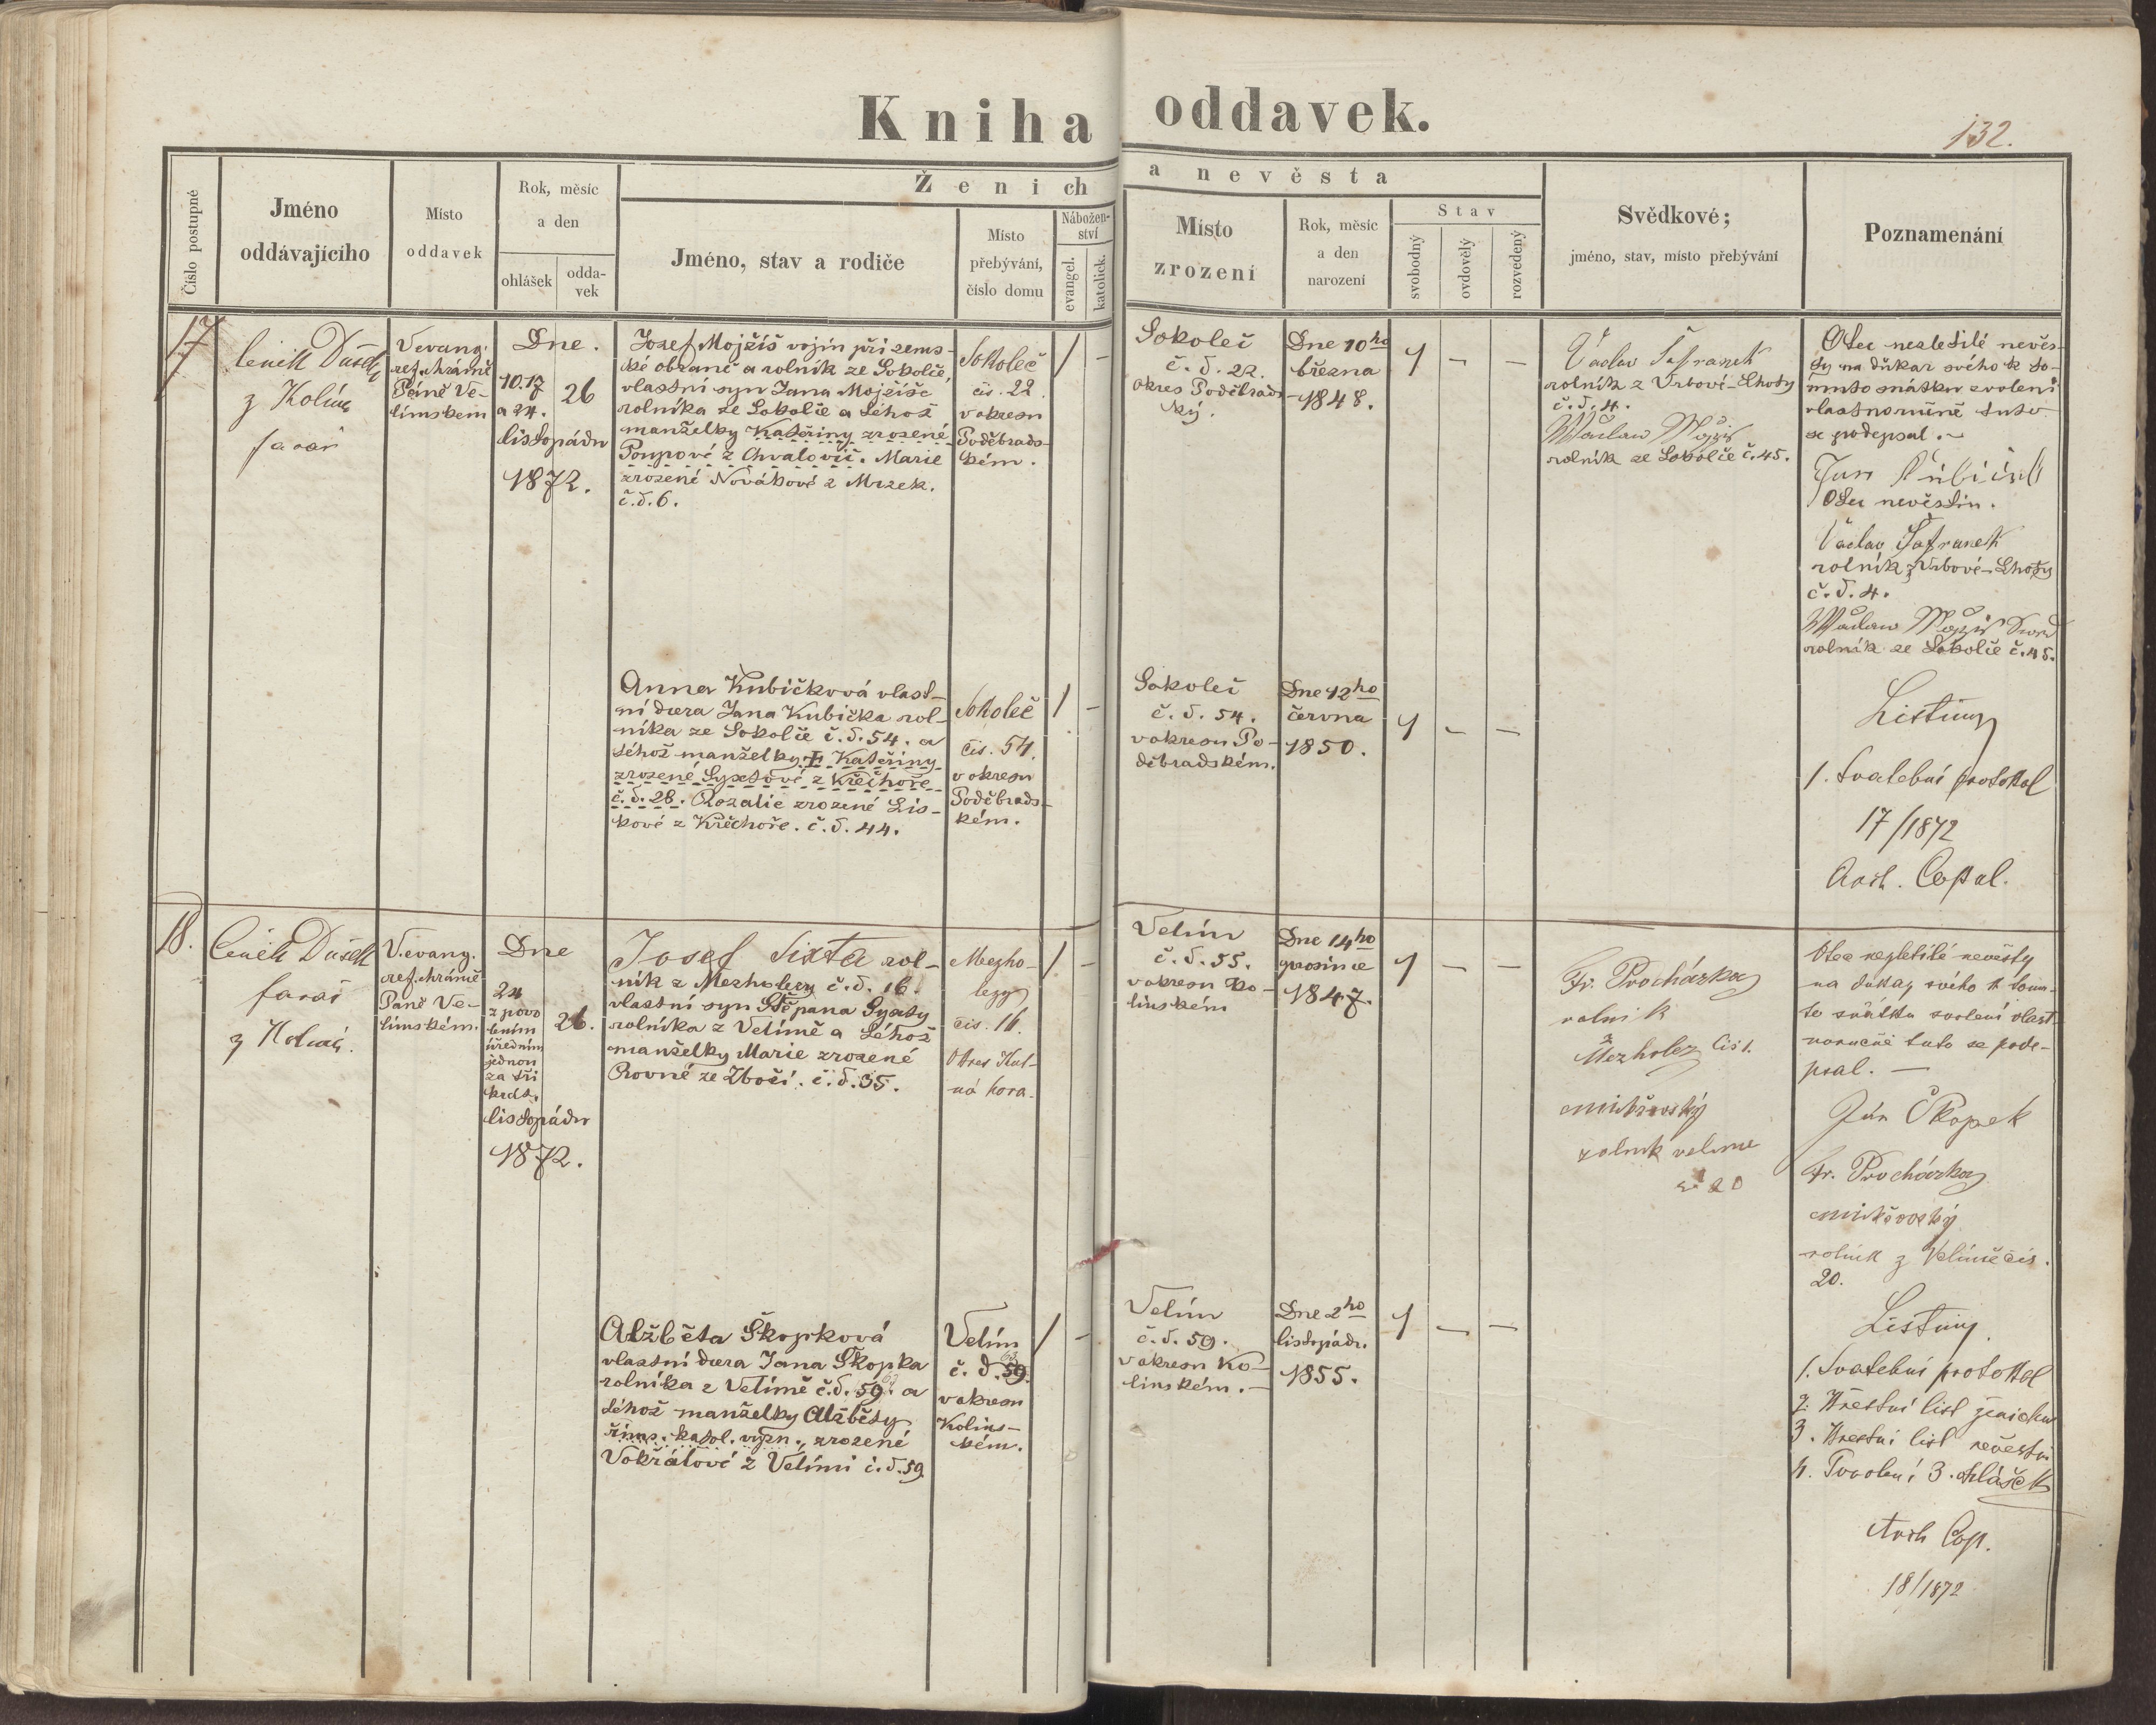 Kniha oddavek.
132.
Číslo postupné
Jméno
oddávajícího
Místo
oddavek
Rok, měsíc
a den
ohlášek
odda-
vek
Ženich a nevěsta
Jméno, stav a rodiče
Místo
přebývání,
číslo domu
Nábožen-
ství
evangel.
katolick.
Místo
zrození
Rok, měsíc
a den
narození
Stav
svobodný
ovdovělý
rozvedený
Svědkové;
jméno, stav, místo přebývání
Poznamenání
17
Čeněk Dušek
z Kolína
farář
V evang.
ref. chrámě
Páně Ve-
límském
Dne.
10. 17
a 24.
26
listopádu
1872.
Josef Mojžíš vojín při zems-
ké obraně a rolník ze Sokolče,
vlastní syn Jana Mojžíše
rolníka ze Sokolče a téhož
manželky Kateřiny zrozené
Poupové z Chvalovic. Marie
zrozené Novákové z Mrzek.
č.d. 6.
Sokoleč
čís. 22.
v okresu
Poděbrads-
kém.
1 –
Sokoleč
č. d. 22.
okres Poděbrads-
ký.
Dne 10ho
března
1848.
1 – –
Václav Šafranek
rolník z Vrbové-Lhoty
č. d. 4.
Wáclaw
rolník ze Sokolče č. 45.
Otec nezletilé nevěs-
ty na důkaz svého k to-
muto sňatku svolení
vlastnoručně tuto
se podepsal. –
Jan Kubiček
Otec nevěstin.
Václav Šafranek
rolník z Vrbové-Lhoty
č. d. 4.
Wáclaw
rolník ze Sokolče č. 45.
Anna Kubičková vlast-
ní dcera Jana Kubička rol-
níka ze Sokolče č. d. 54. a
téhož manželky † Kateřiny
zrozené Syxtové z Křečhoře
č. d. 28. Rozalie zrozené Lis-
kové z Křěchoře. č. d. 44.
Sokoleč
čís. 54.
v okresu
Poděbrads-
kém.
1 –
Sokoleč
č. d. 54.
v okresu Po-
děbradském.
Dne 12ho
června
1850.
1 – –
Listiny
1. Svatební protokol
17/1872
Arch. Copul.
18.
Čeněk Dušek
farář
z Kolína.
V evang.
ref. chrámě
Páně Ve-
límském.
Dne
24
z povo
lením
úředním
jednou
za tři
krát.
26.
listopádu
1872.
Josef Sixta rol-
ník z Mezholez č. d. 16.
vlastní syn Štěpana Syxty
rolníka z Velímě a téhož
manželky Marie zrozené
Rovné ze Zboží. č. d. 35.
Mezho-
lezy
čís. 16.
Okres Kut-
ná hora.
1 –
Velím
č. d. 55.
v okresu Ko-
línském
Dne 14ho
prosince
1847.
1 – –
Fr. Procházka
rolník
z
Mezholez čís 1.
mikšovský
rolnik velime
č. 20
Otec nezletilé nevěsty
na důkaz svého k tomu-
to sňátku svolení vlast-
noručně tuto se pode-
psal. –
Ján Škopek
Fr. Procházka
mikšovský
rolník z Velimě čís.
20.
Alžběta Škopková
vlastní dcera Jana Škopka
rolníka z Velímě č. d. 59. 63 a
téhož manželky Alžběty
říms. katol. vyzn., zrozené
Vokřálové z Velími č. d. 59.
Velím
63
č. d. 59.
v okresu
Kolíns-
kém.
1 –
Velím
č. d. 59.
v okresu Ko-
línském. –
Dne 2ho
listopádu.
1855.
1 – –
Listiny.
1. Svatební protokol
2. Křestní list ženicha
3. Křestní list nevěsty
4. Povolení 3. ohlášek
Arch Cop.
18/1872